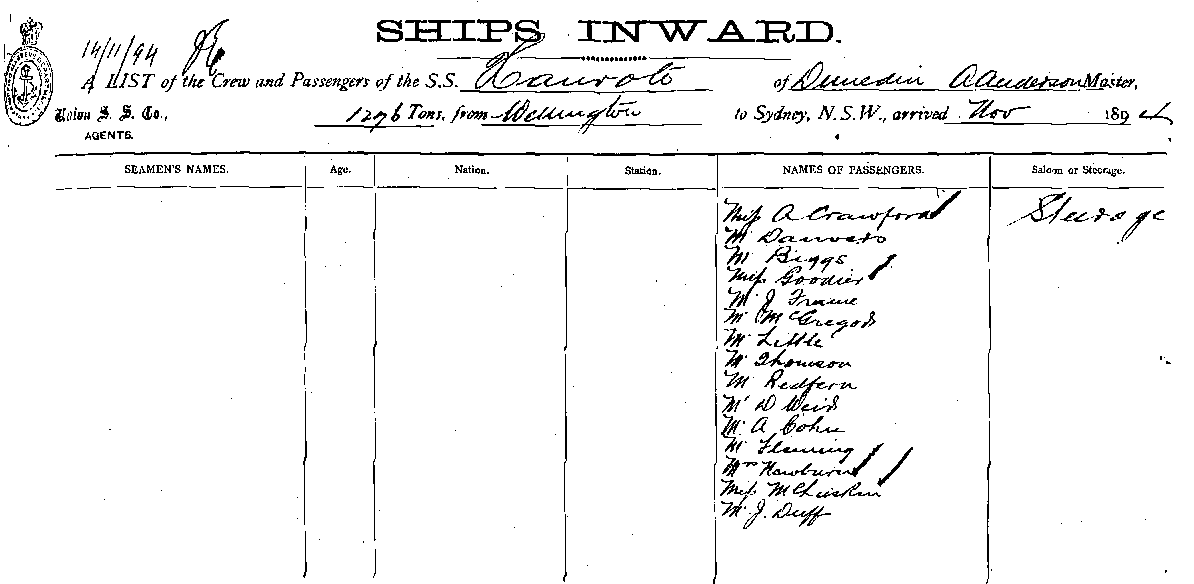 SHIPS INWARD.
14/11/94
A LIST of the Crew and Passengers of the S.S. Hauroto of Dunedin A Anderson Master,
Union S. S. Co., 1276 Tons, from Wellington to Sydney, N.S.W., arrived Nov 1894
AGENTS.
SEAMEN'S NAMES. Age. Nation. Station. NAMES OF PASSENGERS. Saloon or Steerage.
Miss A Crawford Steerage
Mr Danvers
Mr Biggs
Miss Goodier
Mr J Frame
Mr McGregor
Mr Little
Mr Thomson
Mr Redfern
Mr D Weir
Mr A Cohn
Mr Fleming
Mrs Hawburn
Miss
Mr J. Duff